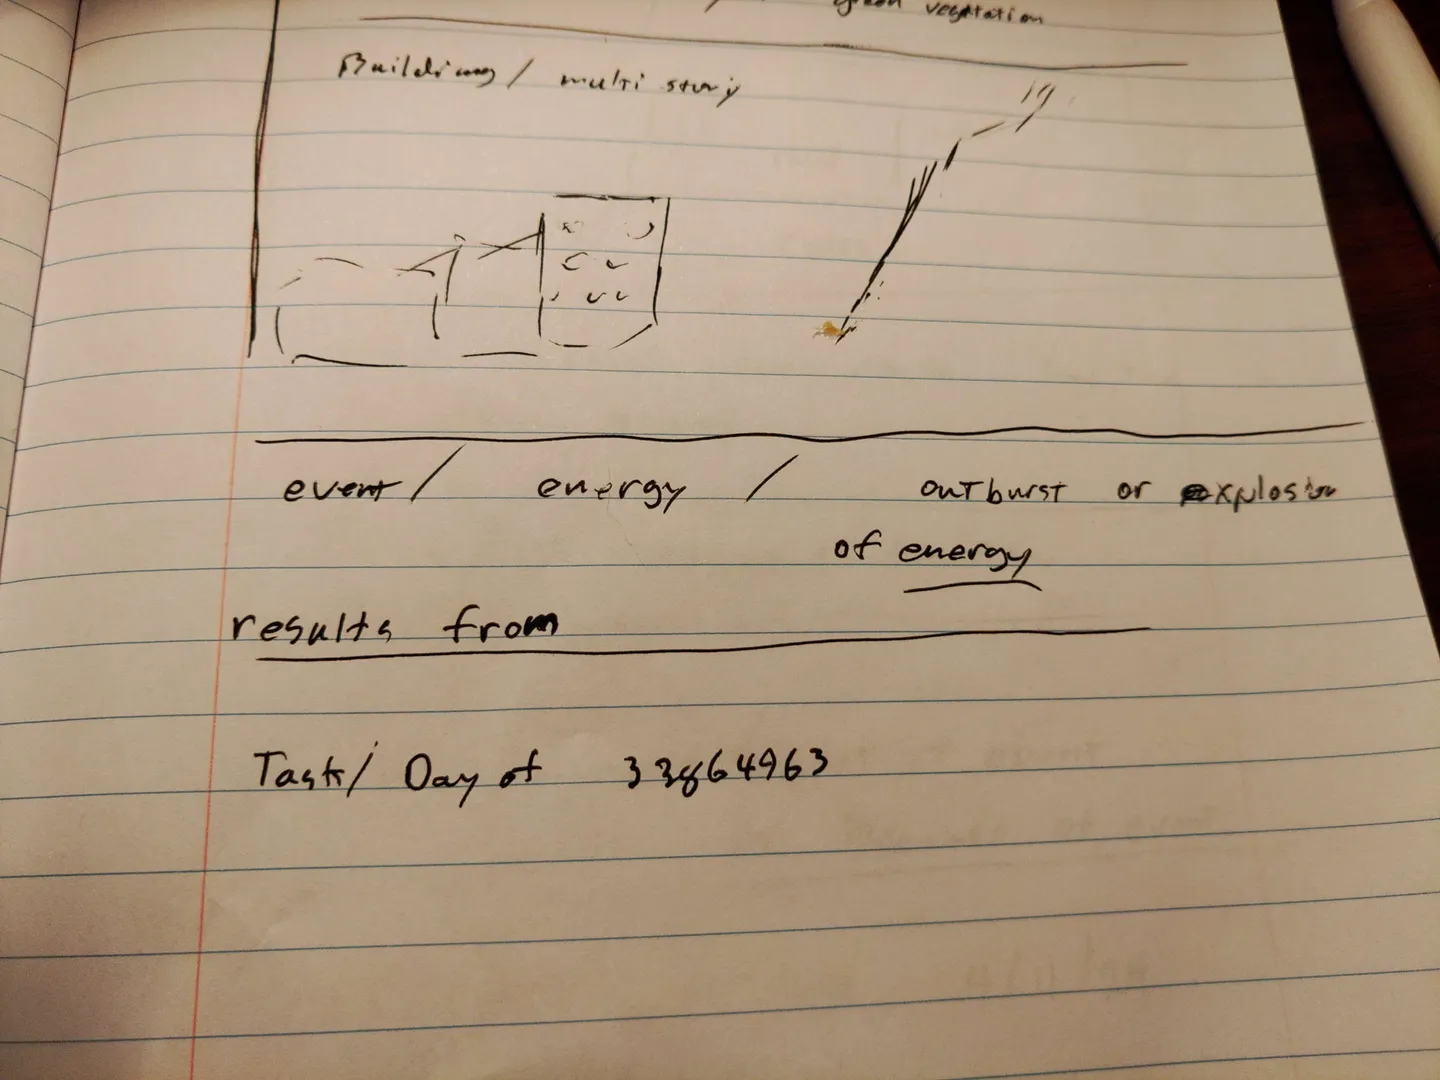 green vegetation
Building / multi story
event / energy / outburst or explosion
of energy
results from
Task / Day of 33864963